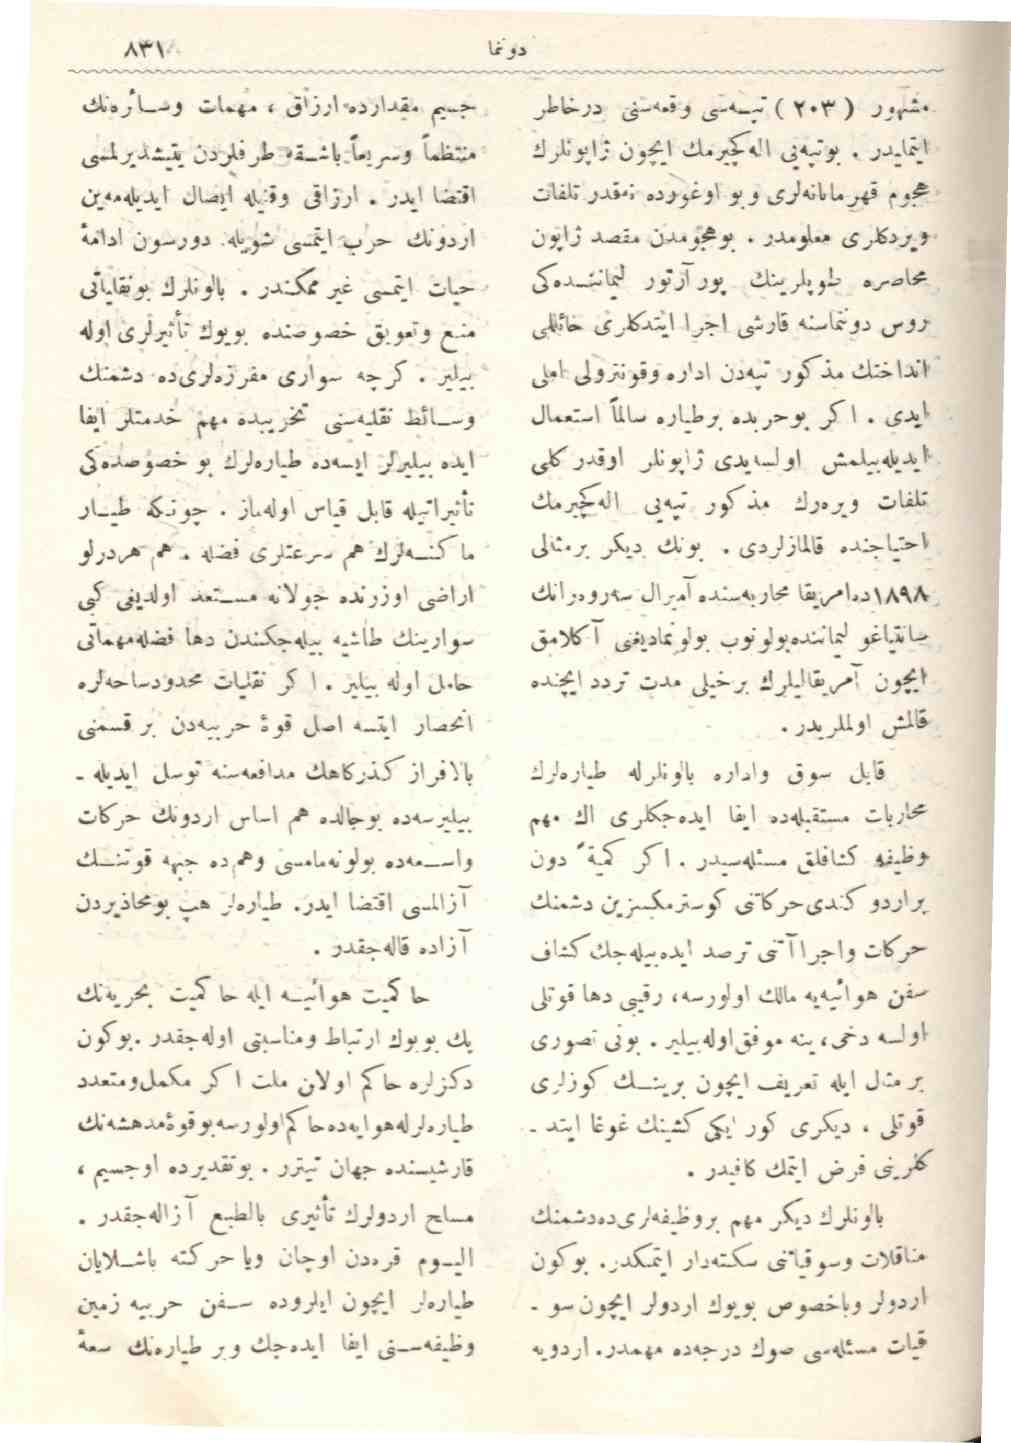 دوننما
٨٣١
مشهور ( ٢٠٣ ) تپه‌سی وقعه‌سنی درخاطر
ایتمایدر . بوتپه‌یی اله‌كچیرمك ایچون ژاپونلرك
هجوم قهرمانانه‌لری و بو اوغورده نه‌قدر تلفات
ویردكلری معلومدر . بوهجومدن مقصد ژاپون
محاصره طوپلرینك پور آرتور لیماننده‌كی
روس دوننماسنه قارشی اجرا ایتدكلری حائللی
انداختك مذكور تپه‌دن اداره وقونترولی املی
ایدی . اكر بوحربده برطیاره سالماً استعمال
ایدیله‌بیلمش اولسه‌یدی ژاپونلر اوقدر كلی
تلفات ویره‌رك مذكور تپه‌یی اله‌كچیرمك
احتیاجنده قالمازلردی . بونك دیكر برمثالی
١٨٩٨ده‌امریقا محاربه‌سنده آمیرال سه‌روه‌رانك
سانتیاغو لیماننده‌بولونوب بولونمادیغنی آكلامق
ایچون آمریقالیلرك برخیلی مدت تردد ایچنده
قالمش اولملریدر .
قابل سوق واداره بالونلرله طیاره‌لرك
محاربات مستقبله‌ده ایفا ایده‌جكلری اك مهم
وظیفه كشافلق مسئله‌سیدر . اكر كمیةً دون
براردو كندی‌حركاتنی كوسترمكسزین دشمنك
حركات واجراآتنی ترصد ایده‌بیله‌جك كشاف
سفن هوائیه‌یه مالك اولورسه، رقیبی دها قوتلی
اولسه دخی، ینه موفق‌اوله‌بیلیر . بونی تصوری
بر مثال ایله تعریف ایچون برینـك كوزلری
قوتلی ، دیكری كور ایكی كشینك غوغا ایتد -
كلرینی فرض ایتمك كافیدر .
بالونلرك دیكر مهم بروظیفه‌لری‌ده‌دشمنك
مناقلات وسوقیاتنی سكته‌دار ایتمكدر. بوكون
اردولر وباخصوص بویوك اردولر ایچون سو -
قیات مسئله‌سی صوك درجه‌ده مهمدر. اردویه
جسیم مقدارده ارزاق ، مهمات وسـائره‌نك
منتظماً وسریعاً باشـقه طرفلردن یتیشدیرلمسی
اقتضا ایدر . ارزاقی وقتیله ایصال ایدیله‌مه‌ین
اردونك حرب ایتمسی شویله دورسون ادامهٔ
حیات ایتمسی غیر ممكندر . بالونلرك بونقلیاتی
منـع وتعویق خصوصنده بویوك تأثیرلری اوله
بیلیر . كرچه سواری مفرزه‌لری‌ده دشمنك
وسـائط نقلیه‌سنی تخریبده مهم خدمتلر ایفا
ایده بیلیرلر ایسه‌ده طیاره‌لرك بو خصوصده‌كی
تأثیراتیله قابل قیاس اوله‌ماز . چونكه طیـار
ماكنـه‌لرك هم سرعتلری فضله . هم هردرلو
اراضی اوزرنده جولانه مسـتعد اولدیغی كبی
سوارینك طاشیه بیله‌جكندن دها فضله‌مهماتی
حامل اوله بیلیر . اكر نقلیات محدودساحه‌لره
انحصار ایتسه اصل قوهٔ حربیه‌دن بر قسمنی
بالافراز كذركاهك مدافعه‌سنه توسل ایدیله -
بیلیرسه‌ده بوحالده هم اساس اردونك حركات
واسـعه‌ده بولونه‌مامسی وهم‌ده جبهه قوتنـك
آزالمسی اقتضا ایدر. طیاره‌لر هپ بومحاذیردن
آزاده قاله‌جقدر .
حاكمیت هوائیـه ایله حاكمیت بحریه‌نك
پك بویوك ارتباط ومناسبتی اوله‌جقدر .بوكون
دكزلره حاكم اولان ملت اكر مكمل‌ومتعدد
طیاره‌لرله‌هوایه‌ده‌حاكم‌اولورسه‌بوقوهٔ‌مدهشه‌نك
قارشیسنده جهان تیترر . بوتقدیرده اوجسیم ،
مسلح اردولرك تأثیری بالطبع آزاله‌جقدر .
الیـوم قره‌دن اوچان ویا حركته باشـلایان
طیاره‌لر ایچون ایلروده سـفن حربیه زمین
وظیفه‌سـنی ایفا ایده‌جك و بر طیاره‌نك سعهٔ